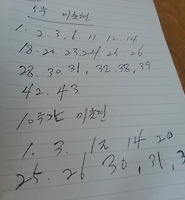 1주 미출현
1. 2. 3. 6 11 12. 14
18. 20. 23. 24. 25 26
28. 30. 31, 32. 38, 39
42. 43
10주간 미출현
1. 3. 12 14 20
25. 26 30, 31, 3